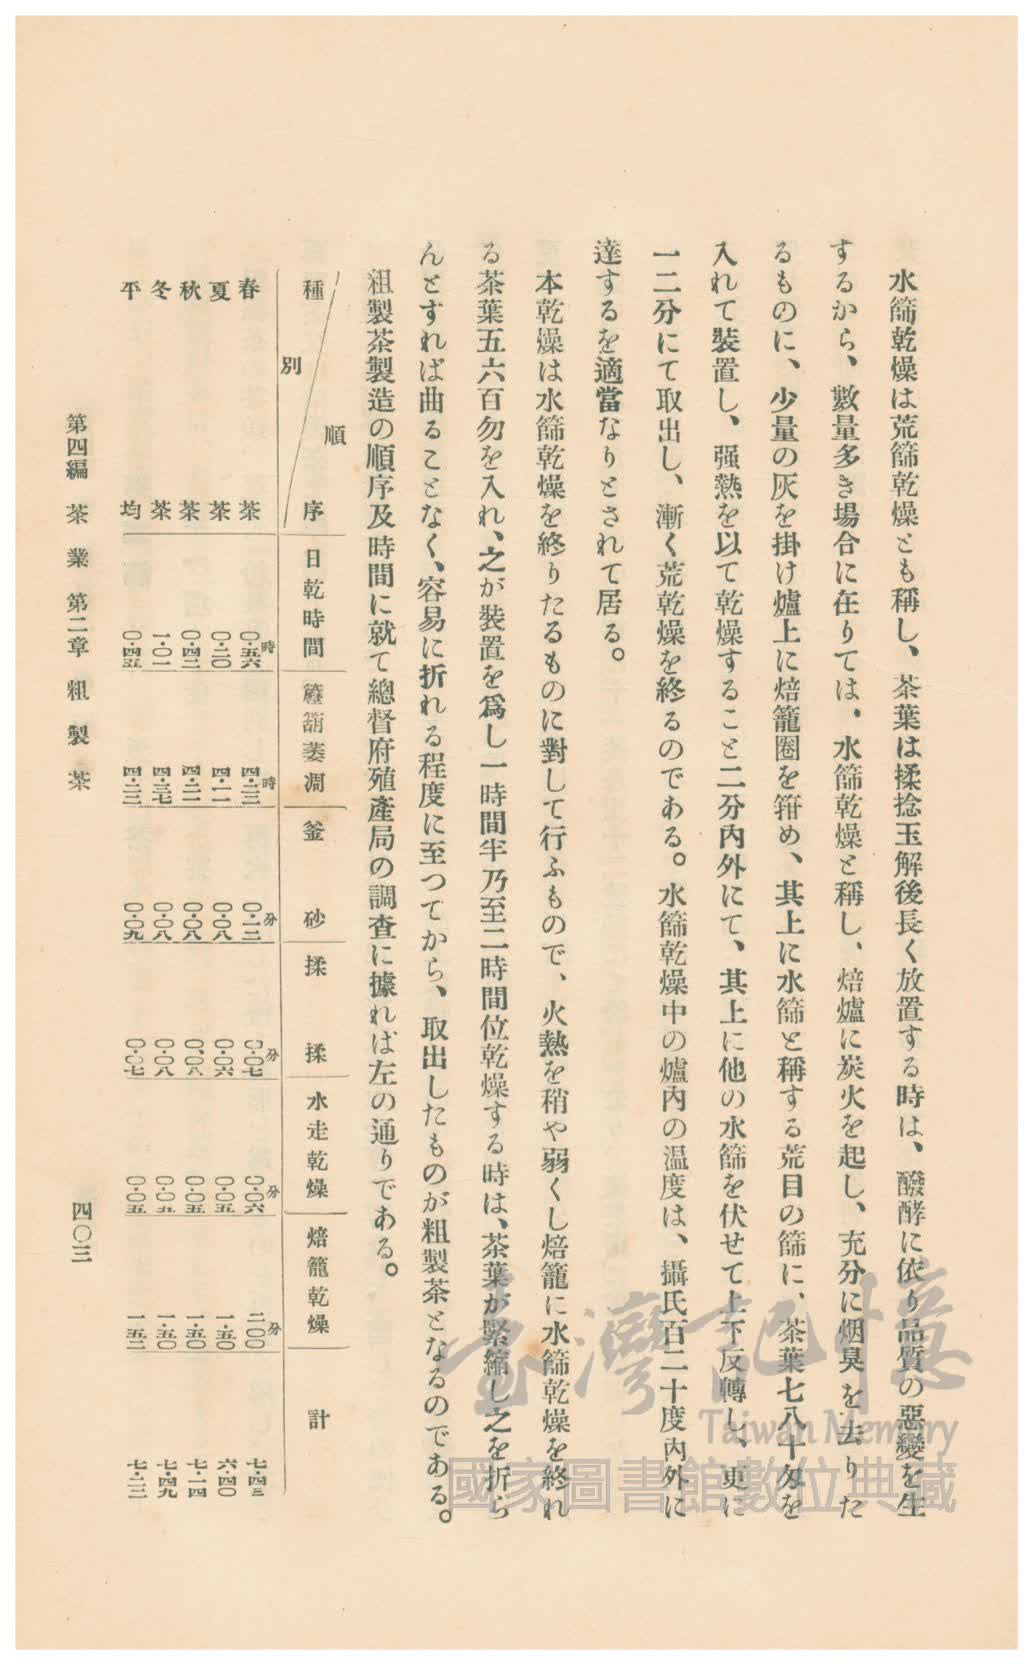 水篩乾燥は荒篩乾燥とも稱し、茶葉は揉捻玉解後長く放置する時は、醱酵に依り品質の惡變を生
するから、數量多き場合に在りては、水篩乾燥と稱し、焙爐に炭火を起し、充分に烟臭を去りた
るものに、少量の灰を掛け爐上に焙籠圈を箝め、其上に水篩と稱する荒目の篩に、茶葉七八十匁を
入れて裝置し、强熱を以て乾燥すること二分內外にて、其上に他の水篩を伏せて上下反轉し、更に
一二分にて取出し、漸く荒乾燥を終るのである。水篩乾燥中の爐內の温度は、攝氏百二十度內外に
達するを適當なりとされて居る。
本乾燥は水篩乾燥を終りたるものに對して行ふもので、火熱を稍や弱くし焙籠に水篩乾燥を終れ
る茶葉五六百匁を入れ、之が裝置を爲し一時間半乃至二時間位乾燥する時は、茶葉が緊縮し之を折ら
んとすれば曲ることなく、容易に折れる程度に至つてから、取出したものが粗製茶となるのである。
粗製茶製造の順序及時間に就て總督府殖產局の調査に據れば左の通りである。
種別 順序 日乾時間 萎凋 釜砂 揉揉 水走乾燥 焙籠乾燥 計
春茶 〇・五六時 四・二三時 〇・一二分 〇・〇七分 〇・〇六分 二・〇〇分 七・四三
夏茶 〇・二〇 四・一一 〇・〇八 〇・〇六 〇・〇五 一・五〇 六・四〇
秋茶 〇・四二 四・二一 〇・〇八 〇、〇八 〇・〇五 一・五〇 七・一四
冬茶 一・〇一 四・三七 〇・〇八 〇・〇八 〇・〇五 一・五〇 七・四九
平均 〇・四五 四・二三 〇・〇九 〇・〇七 〇・〇五 一・五二 七・二二
第四編 茶業 第二章 粗製茶 四〇三
臺灣記憶
Taiwan Memory
國家圖書館數位典藏